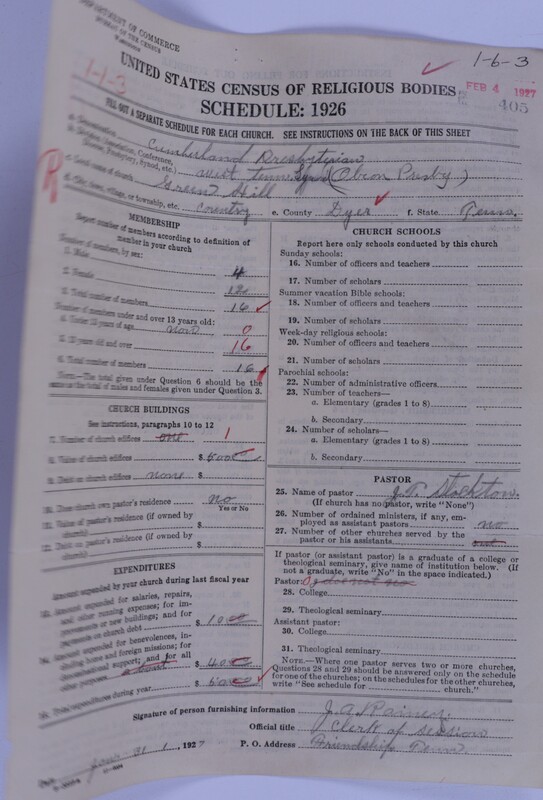 DEPARTMENT OF COMMERCE
BUREAU OF THE CENSUS
WASHINGTON
1-6-3
1-1-3
UNITED STATES CENSUS OF RELIGIOUS BODIES
FEB 4 1927
405
SCHEDULE: 1926
FILL OUT A SEPARATE SCHEDULE FOR EACH CHURCH. SEE INSTRUCTIONS ON THE BACK OF THIS SHEET
a. Denomination Cumberland Presbyterian
b. Division (Association, Conference, Diocese, Presbytery, Synod, etc.) West Tenn (Obion Presby)
c. Local name of church Green Hill
d. City, town, village, or township, etc. Country e. County Dyer f. State Tenn.
R
MEMBERSHIP
Report number of members according to definition of member in your church
Number of members, by sex:
1. Male 4
2. Female 12
3. Total number of members 16
Number of members under and over 13 years old:
4. Under 13 years of age none 0
5. 13 years old and over 16
6. Total number of members 16
NOTE.—The total given under Question 6 should be the same as the total of males and females given under Question 3.
CHURCH BUILDINGS
See instructions, paragraphs 10 to 12
7. Number of church edifices one 1
8. Value of church edifices $
9. Debt on church edifices none $
10. Does church own pastor's residence? no
Yes or No
11. Value of pastor's residence (if owned by church) $
12. Debt on pastor's residence (if owned by church) $
EXPENDITURES
Amount expended by your church during last fiscal year
13. Amount expended for salaries, repairs, and other running expenses; for improvements or new buildings; and for payments on church debt $
14. Amount expended for benevolences, including home and foreign missions; for denominational support; and for all other purposes $
15. Total expenditures during year $
CHURCH SCHOOLS
Report here only schools conducted by this church
Sunday schools:
16. Number of officers and teachers
17. Number of scholars
Summer vacation Bible schools:
18. Number of officers and teachers
19. Number of scholars
Week-day religious schools:
20. Number of officers and teachers
21. Number of scholars
Parochial schools:
22. Number of administrative officers
23. Number of teachers—
a. Elementary (grades 1 to 8)
b. Secondary
24. Number of scholars—
a. Elementary (grades 1 to 8)
b. Secondary
PASTOR
25. Name of pastor J. T. Stockton.
(If church has no pastor, write "None")
26. Number of ordained ministers, if any, employed as assistant pastors no
27. Number of other churches served by the pastor or his assistants
If pastor (or assistant pastor) is a graduate of a college or theological seminary, give name of institution below. (If not a graduate, write "No" in the space indicated.)
Pastor:
28. College
29. Theological seminary
Assistant pastor:
30. College
31. Theological seminary
NOTE.—Where one pastor serves two or more churches, Questions 28 and 29 should be answered only on the schedule for one of the churches; on the schedules for the other churches, write "See schedule for church."
Signature of person furnishing information
Official title Clerk of Session
Date 1927 P. O. Address Friendship Tenn.